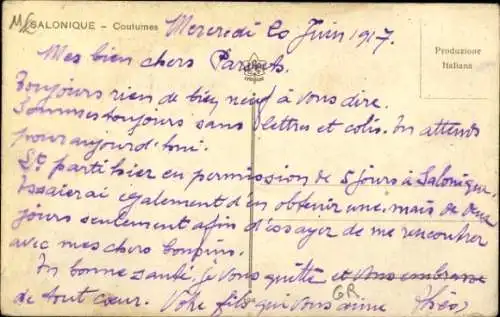 SALONIQUE – Coutumes
Mercredi 20 Juin 1917.
Mes bien chers Parents.
Produzione
Italiana
Toujours rien de bien neuf à vous dire.
Sommes toujours sans lettres et colis. En attends
pour aujourd'hui.
parti hier en permission de 5 jours à Salonique
Essaierai également d'en obtenir une, mais de deux
jours seulement afin d'essayer de me rencontrer
avec mes chers Cousins.
En bonne santé, je vous quitte et vous embrasse
de tout cœur. Votre fils qui vous aime
GR